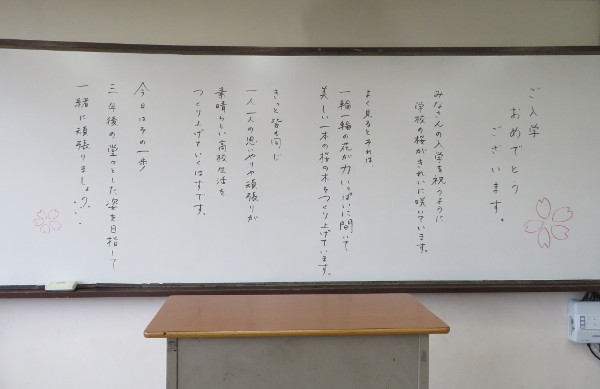 ご入学
おめでとう
ございます。
みなさんの入学を祝うように
学校の桜がきれいに咲いています。
よく見るとそれは、
一輪一輪の花が力いっぱいに開いて
美しい一本の桜の木をつくり上げています。
きっと皆も同じ
一人一人の思いやりや頑張りが
素晴らしい高校生活を
つくり上げていくはずです。
今日はその一歩！
三年後の堂々とした姿を目指して
一緒に頑張りましょう。